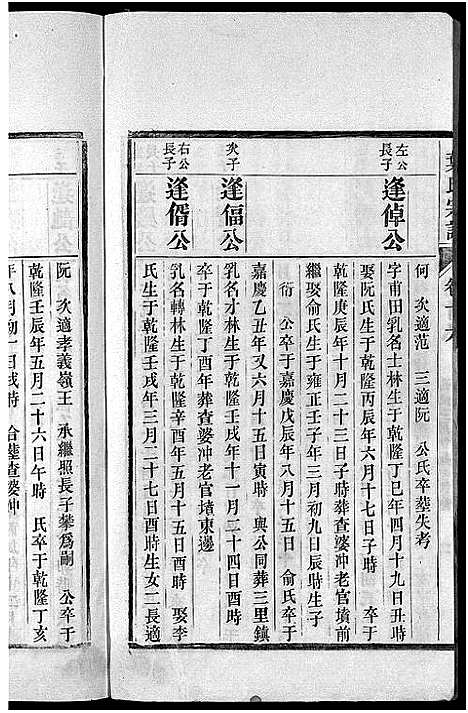 葉氏宗譜
何　次適范　三適阮　公氏卒葬失考
左公長子
逢倬公
字甫田乳名士林生于乾隆丁巳年四月十九日丑時
娶阮氏生于乾隆丙辰年六月十七日子時　卒于
乾隆庚辰年十月二十三日子時葬查婆冲老官墳前
繼娶俞氏生于雍正壬子年三月初九日辰時生子
衍　公卒于嘉慶戊辰年八月十五日　俞氏卒于
嘉慶乙丑年又六月十五日寅時　與公同葬三里鎮
次子
逢偪公
乳名才林生于乾隆壬戌年十一月二十四日酉時
卒于乾隆四十年葬查婆冲老官墳東邊
右公長子
逢偦公
乳名轉林生于乾隆辛酉年五月十五日酉時　娶李
氏生于乾隆壬戌年三月二十七日酉時生女二長適
阮　次適孝義嶺王　承繼照長子搴爲嗣　公卒于
乾隆壬辰年五月二十六日午時　氏卒于乾隆丁亥
年八月初一日戌時　合葬查婆冲